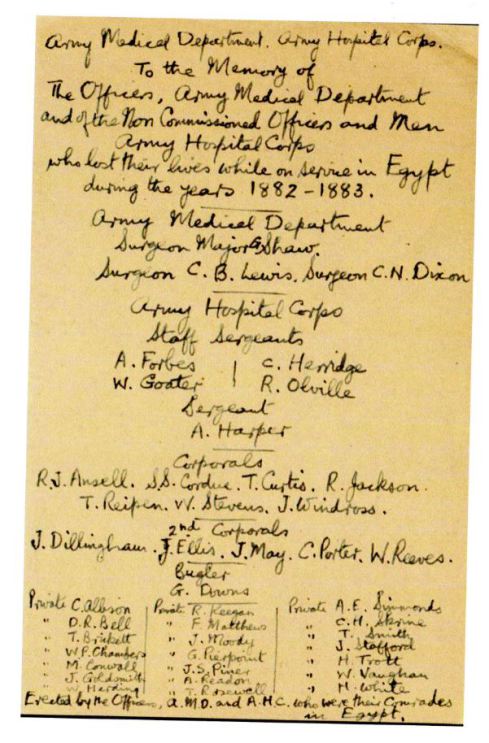 Army Medical Department. Army Hospital Corps.
To the Memory of
The Officers, Army Medical Department
and of the Non Commissioned Officers and Men
Army Hospital Corps
who lost their lives while on service in Egypt
during the years 1882-1883.
Army Medical Department
Surgeon Major G Shaw.
Surgeon C. B. Lewis. Surgeon C.N. Dixon
Army Hospital Corps
Staff Sergeants
A. Forbes | C. Herridge
W. Goater | R. Olville
Sergeant
A. Harper
Corporals
R.J. Ansell. S.S. Cordue. T. Curtis. R. Jackson.
T. Reipen. W. Stevens. J. Windross.
2nd Corporals
J. Dillingham. J. Ellis. J. May. C. Porter. W. Reeves.
Bugler
G. Downs
Private C. Albson Private R. Keegan Private A.E. Simmonds
" D.R. Bell " F. Matthews " C.H. Sterine
" T. Brickett " J. Moody " T. Smith
" W.P. Chambers " G. Pierpoint " J. Stafford
" M. Conwall " J.S. Piner " H. Trott
" J. Goldsmith " A. Readon " W. Vaughan
" W. Harding " T. Rosewell " H. White
Erected by the Officers, A.M.D. and A.H.C. who were their Comrades
in Egypt.